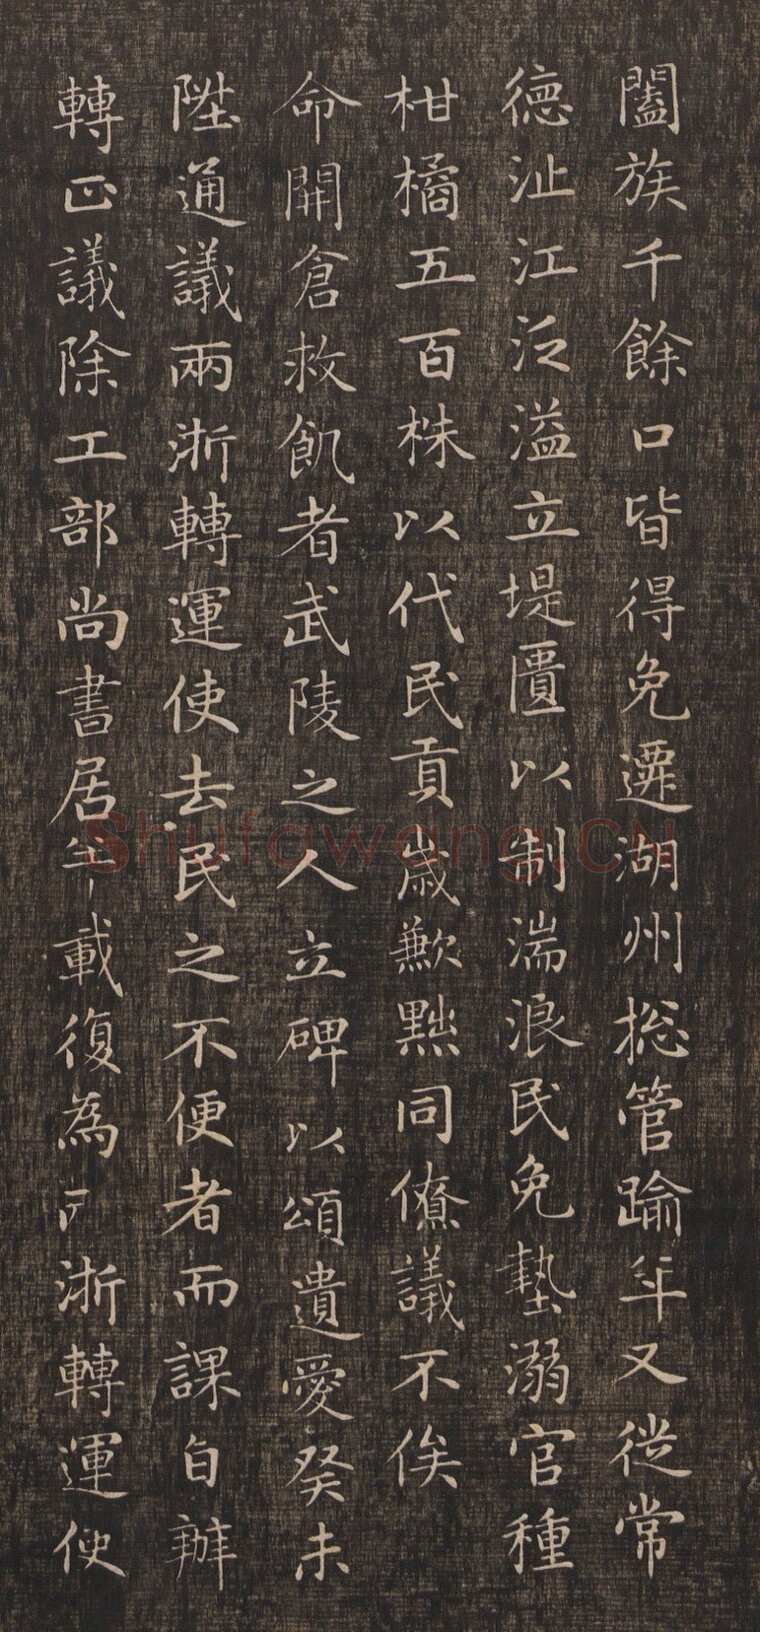 闔族千餘口皆得免遷湖州総管踰年又從常
德沚江泛溢立堤匱以制湍浪民免墊溺官種
柑橘五百株以代民貢歲歉點同僚議不俟
命開倉救飢者武陵之人立碑以頌遺愛癸未
陞通議兩浙轉運使去民之不便者而課自辦
轉正議除工部尚書居半載復為兩浙轉運使
Shufawang.CN